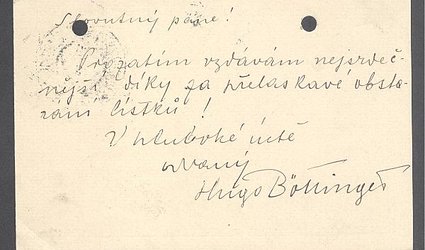 Slovutný pane!
Prozatím vzdávám nejsrdeč-
nější díky za přelaskavé obsta-
rání lístků!
V hluboké úctě
oddaný
Hugo Böttinger